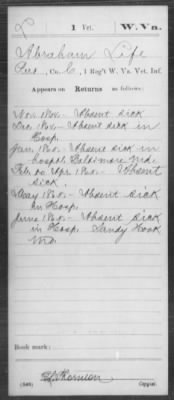 L 1 Vet. W. Va.
Abraham Life
Pvt., Co. C, 1 Reg't W. Va. Vet. Inf.
Appears on Returns as follows:
Nov. 186 - Absent sick
Dec. 186 - Absent sick in
Hosp.
Jan. 186 - Absent sick in
hospt'l Baltimore Md.
Feb. to Apr. 186 - Absent
sick.
May 186 - Absent sick
in Hosp.
June 186 - Absent sick
in Hosp. Sandy Hook
Md.
Book mark:
(546) Copyist.